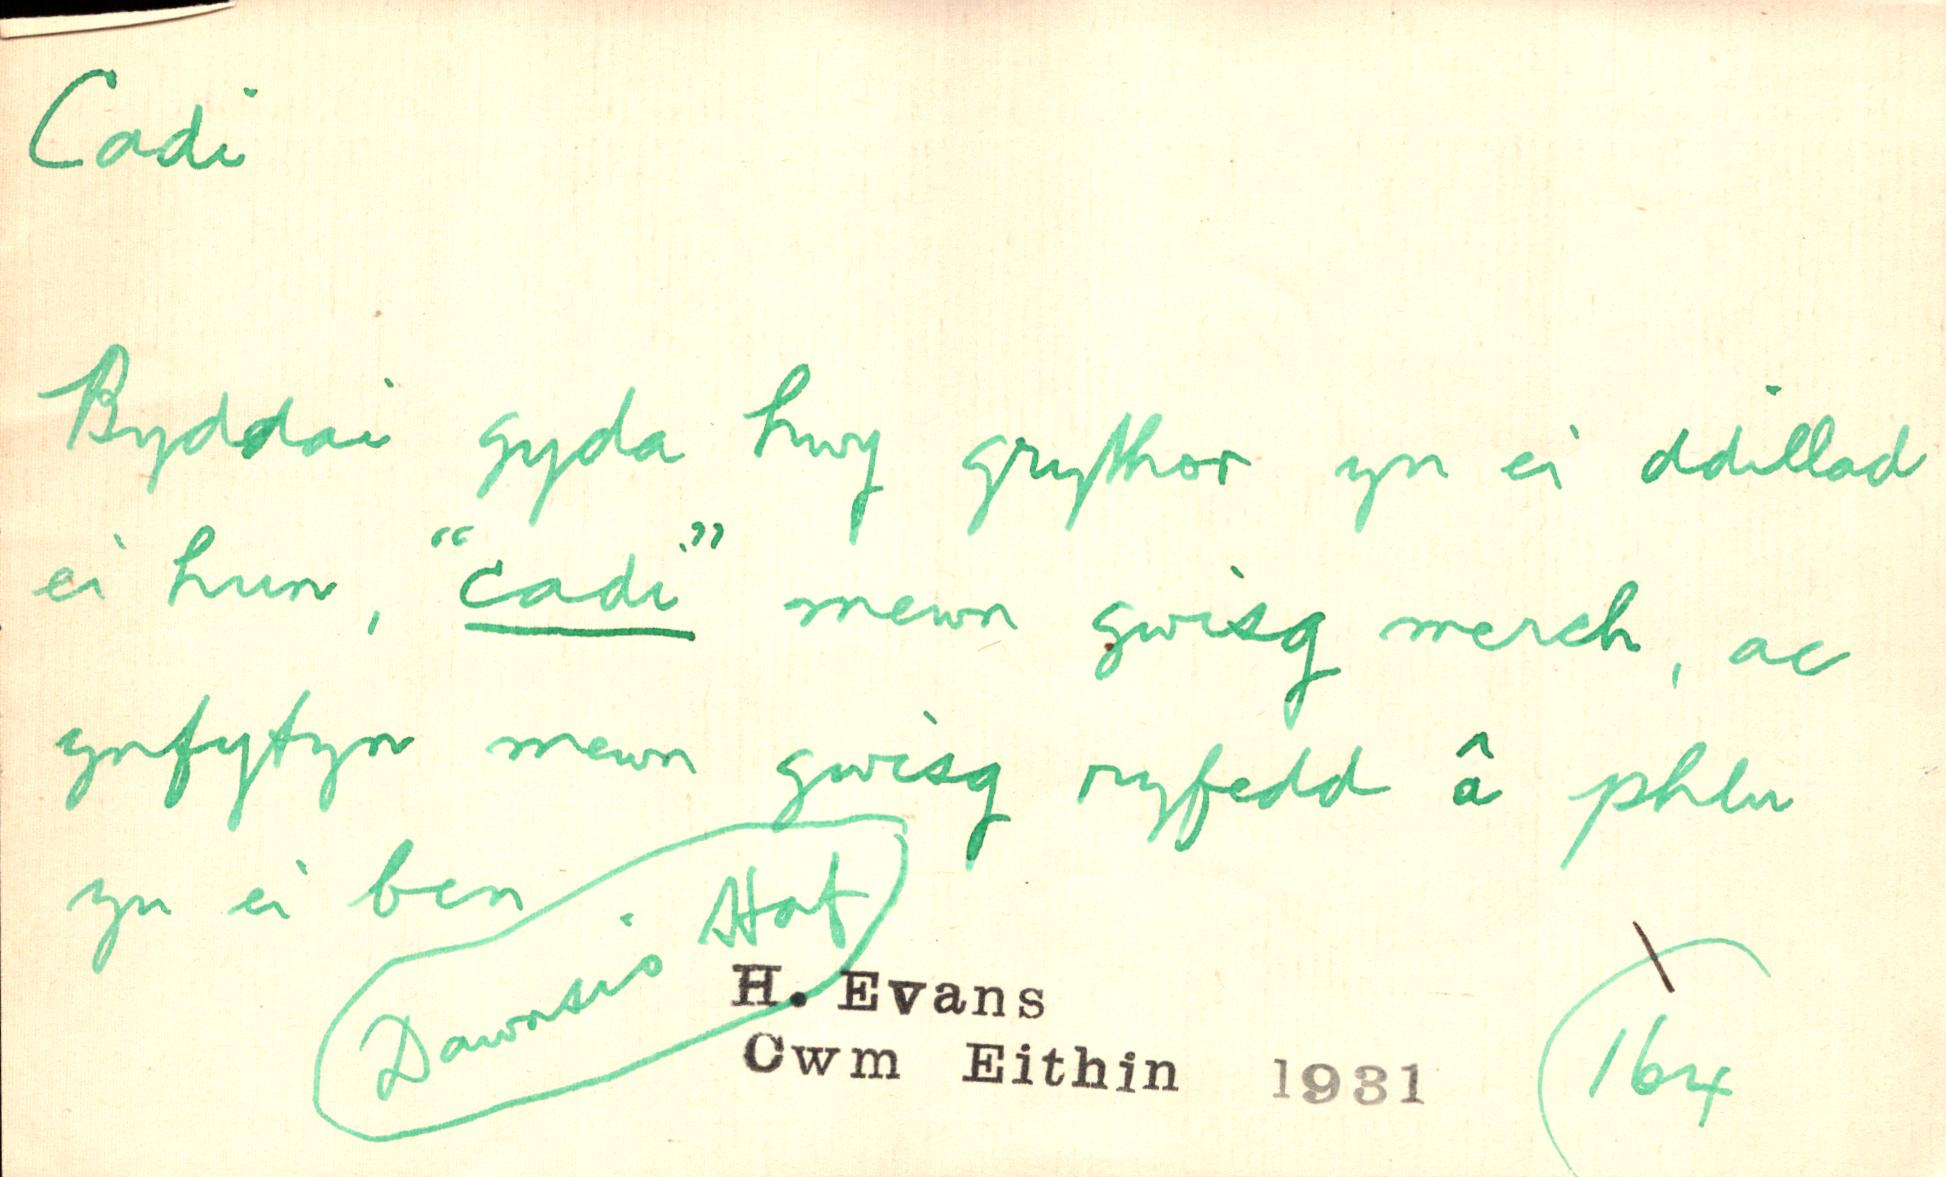 Cadi
Byddai gyda hwy grythor yn ei ddillad
ei hun, "cadi" mewn gwisg merch, ac
ynfytyn mewn gwisg ryfedd â phlu
yn ei ben
Dawnsio Haf
H. Evans
Cwm Eithin 1931
164